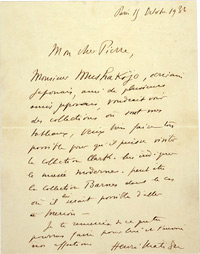 Paris 15 Octobre 1932
Mon cher Pierre,
Monsieur Mushakojo, écrivain
japonais, ami de plusieurs
amis japonais, voudrait voir
des collections où sont mes
tableaux. Veux-tu faire ton
possible pour qu'il puisse visiter
la collection Clark
le musée moderne, peut-être
la collection Barnes dans le cas
où il serait possible d'aller
à Merion
Je te remercie de ce que tu
pourras faire pour lui et t'envoie
mes affections
Henri Matisse